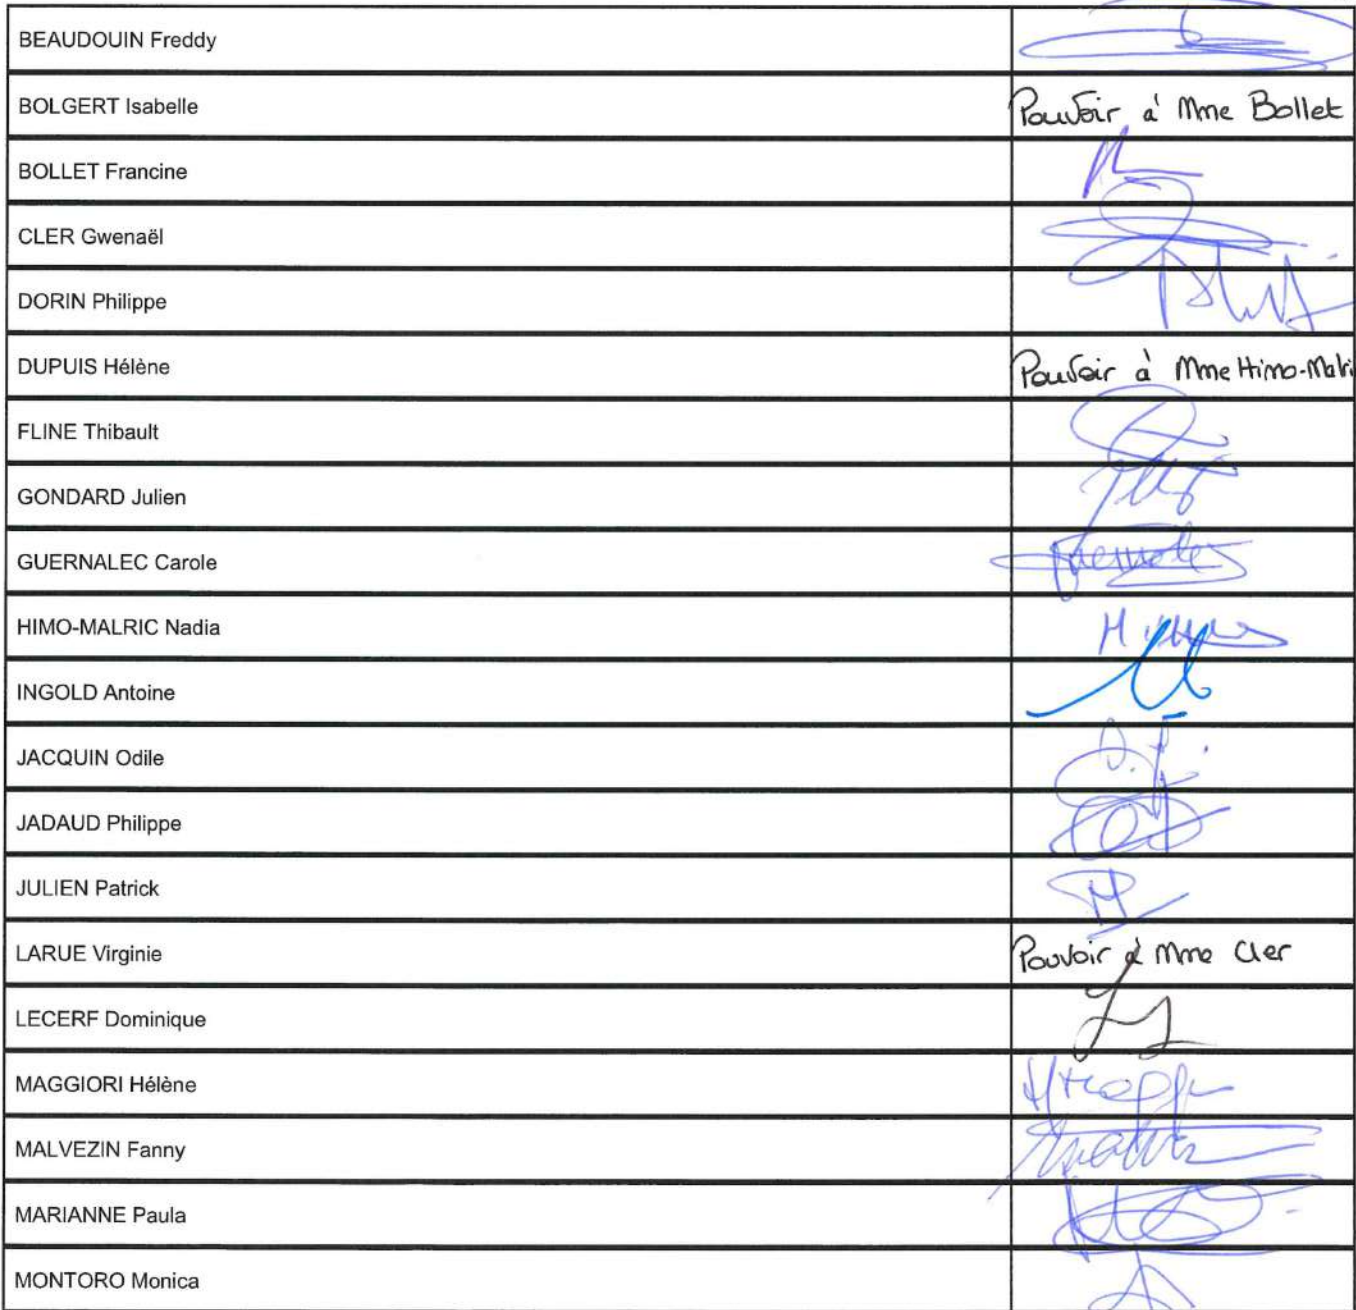 BEAUDOUIN Freddy
BOLGERT Isabelle Pouvoir à Mme Bollet
BOLLET Francine
CLER Gwenaël
DORIN Philippe
DUPUIS Hélène Pouvoir à Mme Himo-Malri
FLINE Thibault
GONDARD Julien
GUERNALEC Carole
HIMO-MALRIC Nadia
INGOLD Antoine
JACQUIN Odile
JADAUD Philippe
JULIEN Patrick
LARUE Virginie Pouvoir à Mme Cler
LECERF Dominique
MAGGIORI Hélène
MALVEZIN Fanny
MARIANNE Paula
MONTORO Monica